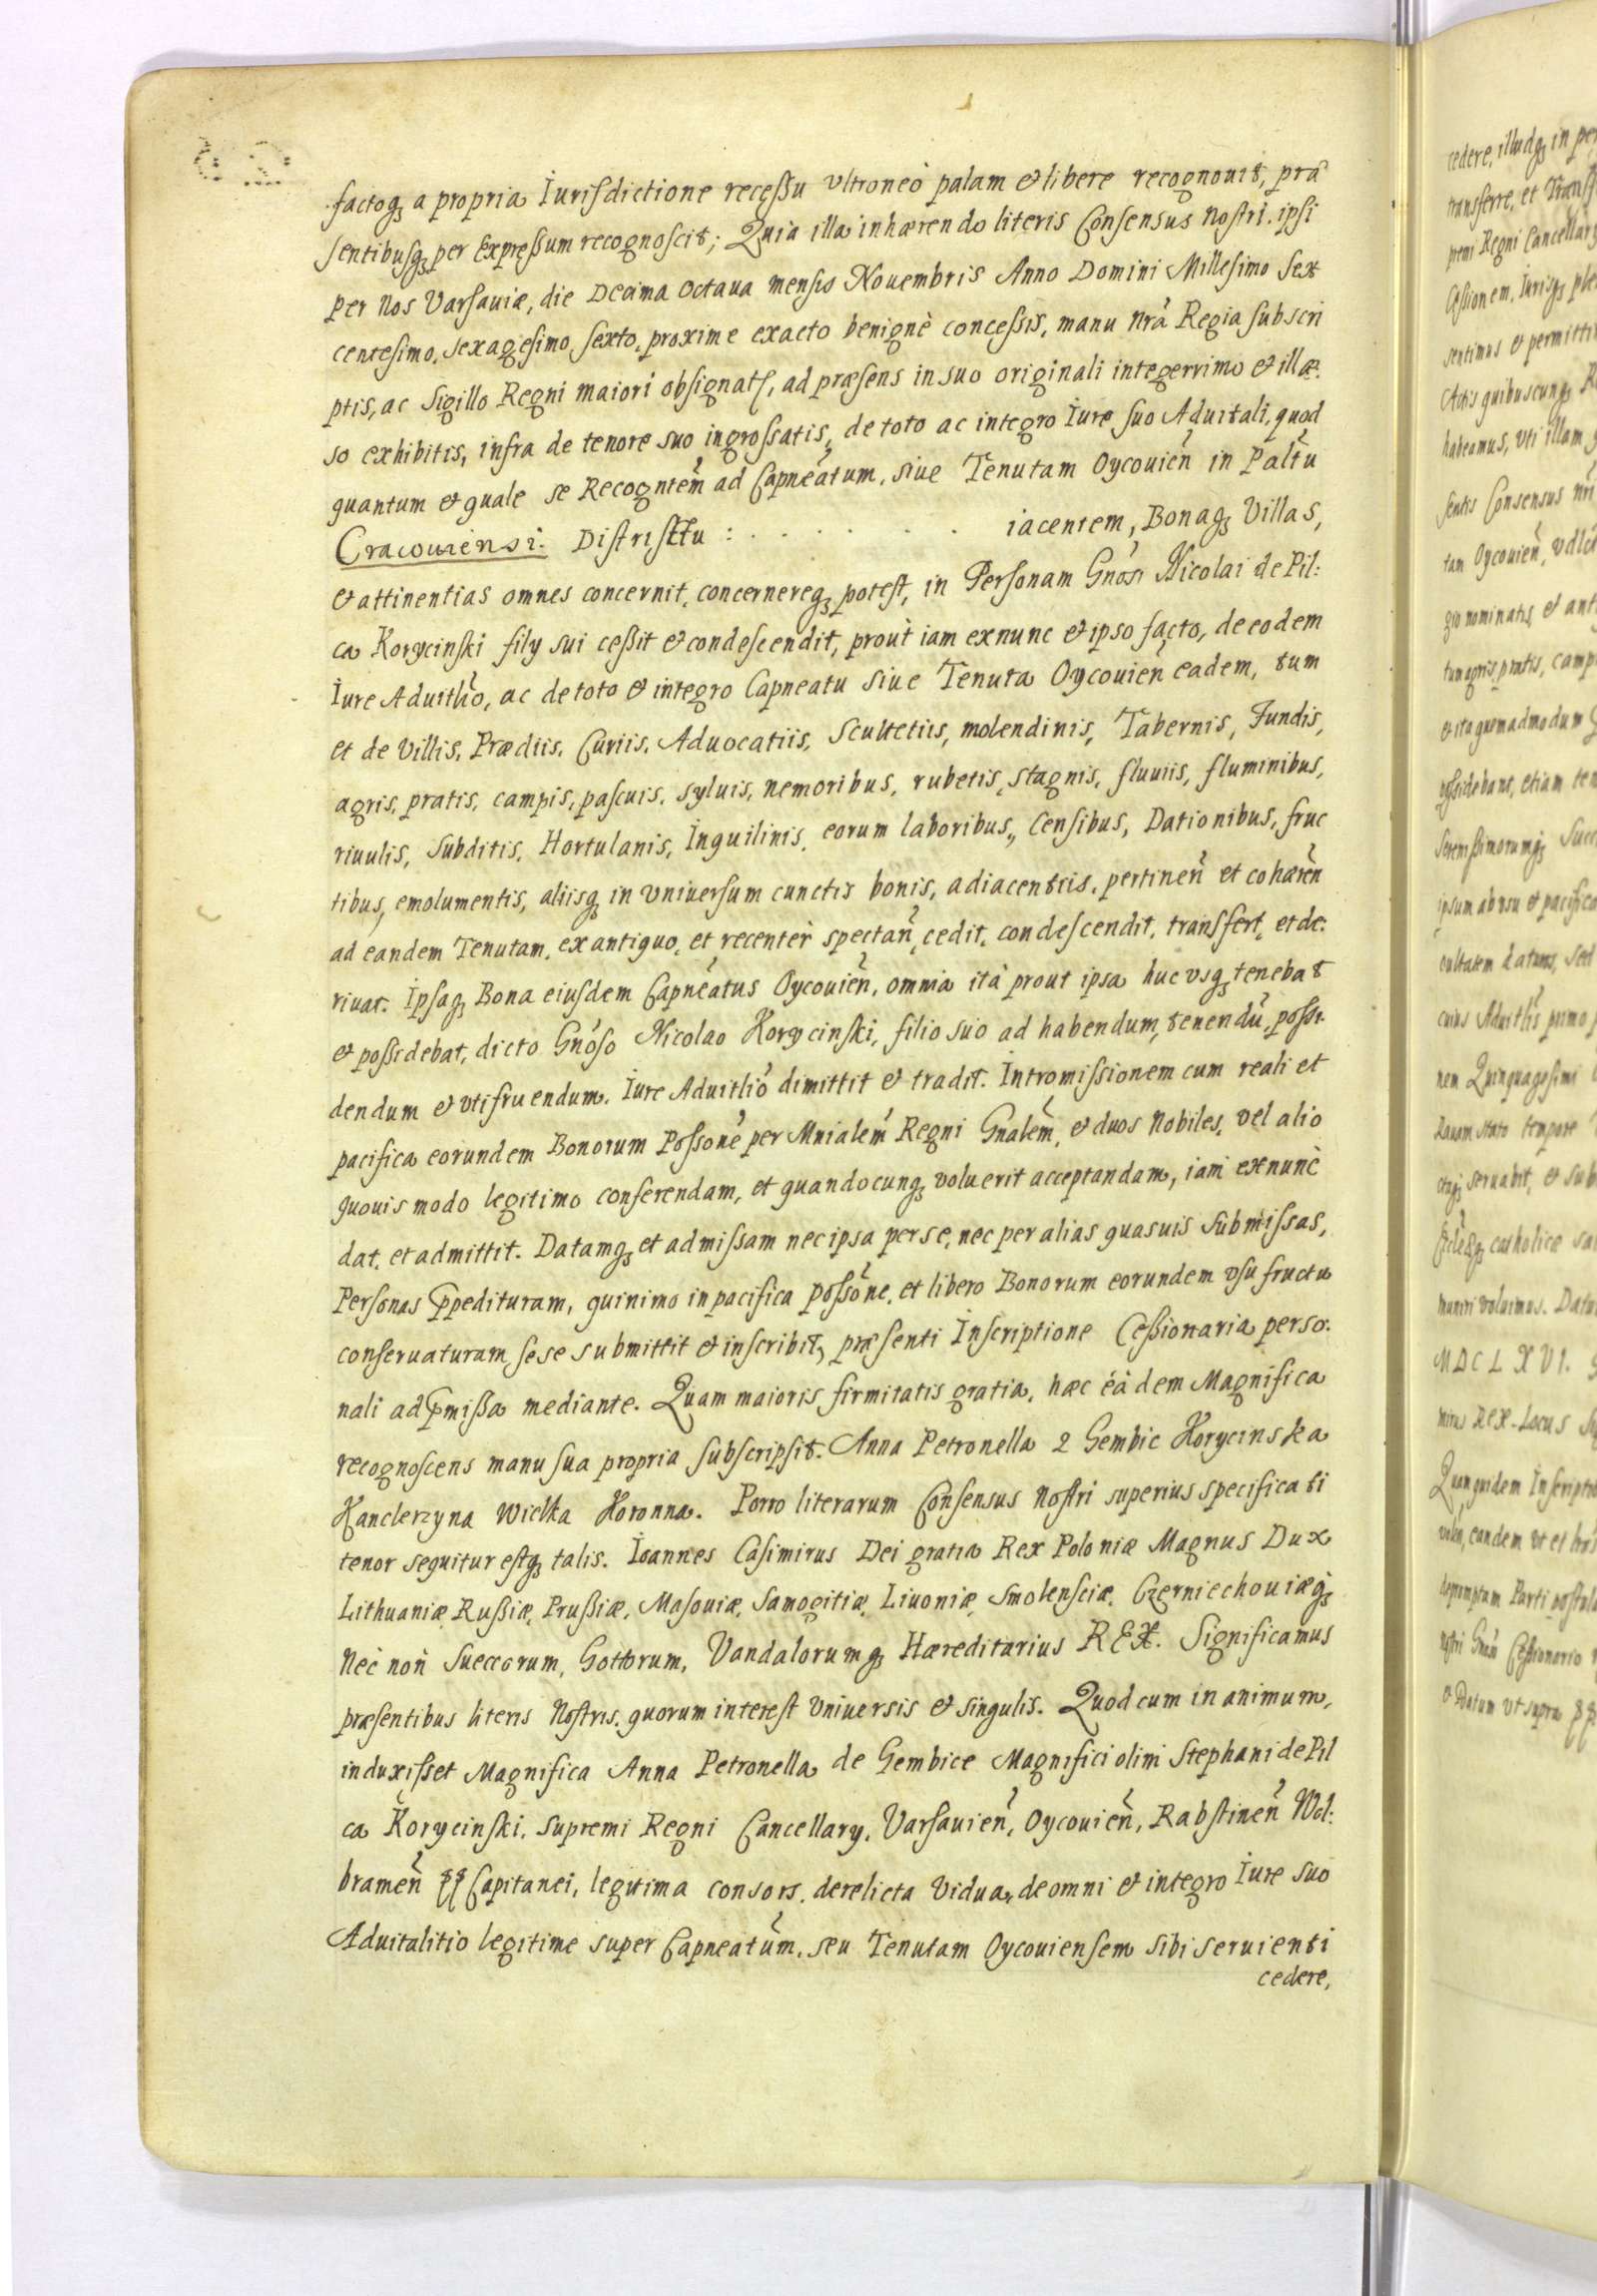 factoq₃ a propria Iurisdictione recessu vltroneò palam et libere recognouit, præ
sentibusq₃ per Expressum recognoscit; Quia illa inhærendo literis Consensus Nostri. ipsi
per Nos Varsauiæ, die Decima Octaua mensis Nouembris Anno Domini Millesimo Sex
centesimo, sexagesimo, sexto, proxime exacto benignè concessis, manu nrã Regia subscri
ptis, ac Sigillo Regni maiori obsignatis, ad præsens in suo originali integerrimo et illæ.
so exhibitis, infra de tenore suo ingrossatis, de toto ac integro Iure suo Aduitali, quod
quantum et quale se Recogntem̃ ad Capneatum, siue Tenutam Oycouień in Paltũ
Cracouiensi. Districtu : . . . . . . iacentem, Bonaq₃ Villas,
et attinentias omnes concernit, concernereq₃ potest, in Personam Gnosi Nicolai de Pil:
ca Korycinski fily sui cessit et condescendit, prout iam ex nunc et ipso facto, de eodem
Iure Aduitlĩo, ac de toto et integro Capneatu siue Tenuta Oycouień eadem, tum
et de Villis, Prædiis, Curiis, Aduocatiis, Scultetiis, molendinis, Tabernis, Fundis,
agris, pratis, campis, pascuis, syluis, nemoribus, rubetis, stagnis, fluuiis, fluminibus,
riuulis, Subditis, Hortulanis, Inquilinis, eorum laboribus, Censibus, Dationibus, fruc
tibus, emolumentis, aliisq₃ in vniuersum cunctis bonis, adiacentiis, pertineñ et cohæreñ
ad eandem Tenutam, ex antiquo, et recenter spectañ, cedit, condescendit, transfert, et de:
riuat. Ipsaq₃ Bona eiusdem Capneatus Oycouień, omnia ità prout ipsa huc vsq₃ tenebat
et possidebat, dicto Gnoso Nicolao Korycinski, filio suo ad habendum, tenendũ, possi
dendum et vtifruendum. Iure Aduitliõ dimittit et tradit. Intromissionem cum reali et
pacifica eorundem Bonorum Possoñe per Mnialem̃ Regni Gnalem̃, et duos Nobiles, vel alio
quouis modo legitimo conferendam, et quandocunq₃ voluerit acceptandam, iam ex nunc
dat, et admittit. Datamq₃ et admissam nec ipsa per se, nec per alias quasuis submissas,
Personas ꝑpedituram, quinimo in pacifica possoñe, et libero Bonorum eorundem vsu fructu
conseruaturam, sese submittit et inscribit, præsenti Inscriptione Cessionaria perso:
nali ad ꝑmissa mediante. Quam maioris firmitatis gratia, hæc eàdem Magnifica
recognoscens manu sua propria subscripsit. Anna Petronella z Gembic Korycinska
Kanclerzyna Wielka Koronna. Porro literarum Consensus Nostri superius specificati
tenor sequitur estq₃ talis. Ioannes Casimirus Dei gratia Rex Poloniæ Magnus Dux
Lithuaniæ, Russiæ, Prussiæ, Masouiæ, Samogitiæ, Liuoniæ, Smolensciæ, Czerniechouiæq₃
Nec non Sueccorum, Gottorum, Vandalorumq₃ Hæreditarius REX. Significamus
præsentibus literis Nostris, quorum interest Vniuersis et singulis. Quod cum in animum,
induxisset Magnifica Anna Petronella de Gembice Magnifici olim Stephani de Pil
ca Korycinski, Supremi Regni Cancellary, Varsauień, Oycouień, Rabstineñ Wol:
brameñ Capitanei, legitima consors, derelicta Vidua, de omni et integro Iure suo
Aduitalitio legitime super Capneatum̃, seu Tenutam Oycouiensem sibi seruienti
cedere,
cedere, illudq₃ in
transferre, et
premi Regni
Cessionem, Iurisq₃
sentimus et
Actis quibuscunq₃
habeamus, vti illam
sentis Consensus
tam Oycouień,
nominatis, et
agris, pratis,
et ita quemadmodum
possidebant, etiam
Serenissimorumq₃
ipsum ab vsu et
datam, sed
cuius primo
nem Quinquagesimi
tempore
seruabit, et
catholicæ
muniri voluimus.
MDCLXVI.
REX. Locus
Quamquidem
eandem vt et
Parti
Cessionario
Datum vt supra